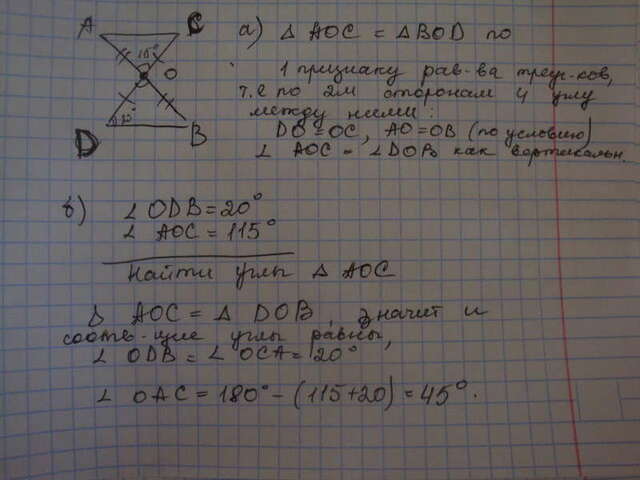 A C
115°
O
20°
D B
а) Δ AOC = Δ BOD по
1 признаку рав-ва треуг-ков,
т.е по 2м сторонам и углу
между ними:
DO=OC, AO=OB (по условию)
∠ AOC = ∠DOB как вертикальн.
б) ∠ ODB = 20°
∠ AOC = 115°
Найти углы Δ AOC
Δ AOC = Δ DOB, значит и
соотв-щие углы равны,
∠ ODB = ∠ OCA = 20°
∠ OAC = 180° - (115+20) = 45°.